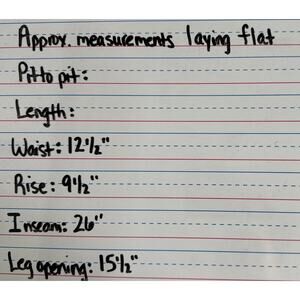 Approx. measurements laying flat
Pit to pit:
Length:
Waist: 12½"
Rise: 9½"
Inseam: 26"
Leg opening: 15½"